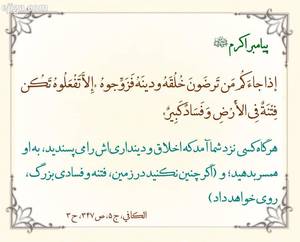 پیامبر اکرم ﷺ
إذا جاءَكُم مَن تَرضَونَ خُلُقَهُ ودينَهُ فَزَوِّجوهُ ، إلاّ تَفْعَلُوهُ تَكُن
فِتنَةٌ فِى الأرْضِ وَ فَسَادٌ كَبِيرٌ.
هرگاه کسی نزد شما آمد که اخلاق و دینداری‌اش را می‌پسندید، به او
همسر بدهید؛ و (اگر چنین نکنید در زمین، فتنه و فسادی بزرگ،
روی خواهد داد)
الکافی، ج۵، ص۳۴۷، ح۳